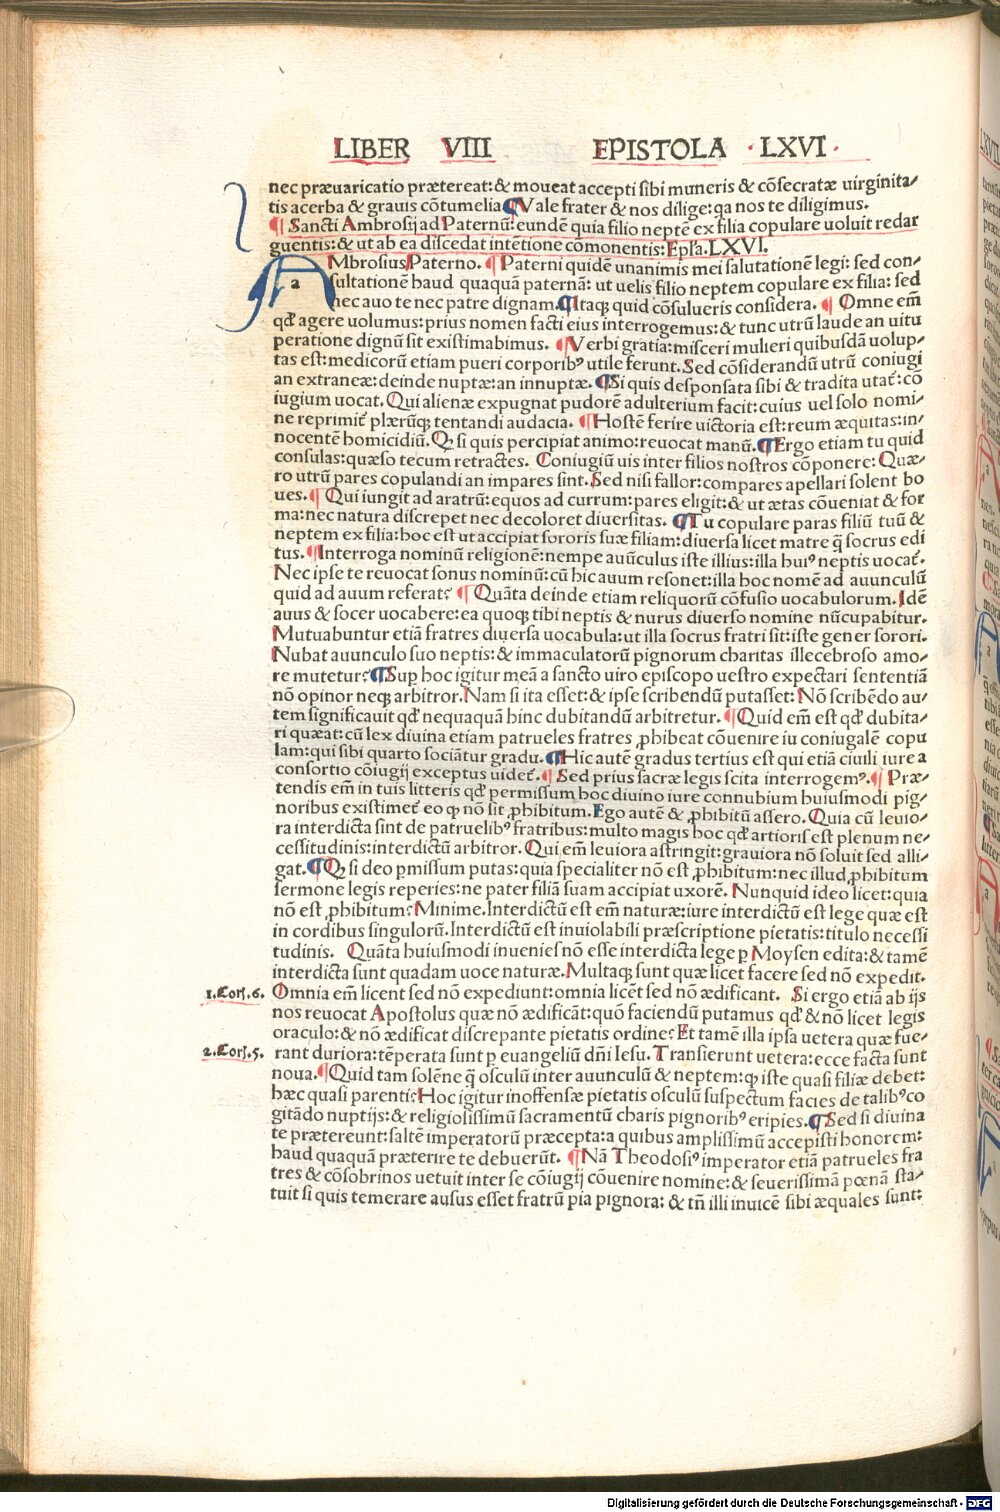 LIBER VIII EPISTOLA LXVI
nec præuaricatio prætereat:& moueat accepti sibi muneris & cõsecratæ uirginita/
tis acerba & grauis cõtumelia ¶Vale frater & nos dilige:qa nos te diligimus.
¶ Sancti Ambrosij ad Paternũ:eundẽ quia filio neptẽ ex filia copulare uoluit redar
guentis:& ut ab ea discedat intẽtione cõmonentis:Epſa.LXVI.
AMbrosius Paterno. ¶Paterni quidẽ unanimis mei salutationẽ legi: sed con/
a sultationẽ haud quaquã paternã: ut uelis filio neptem copulare ex filia: sed
nec auo te nec patre dignam.¶Itaq; quid cõsulueris considera. ¶ Omne em̃
qđ agere uolumus:prius nomen facti eius interrogemus:& tunc utrũ laude an uitu
peratione dignũ sit existimabimus. ¶Verbi gratia:misceri mulieri quibusdã uolup/
tas est:medicorũ etiam pueri corporibꝰ utile ferunt.Sed cõsiderandũ utrũ coniugi
an extraneæ:deinde nuptæ:an innuptæ. ¶Si quis desponsata sibi & tradita utat̃:cõ
iugium uocat.Qui alienæ expugnat pudorẽ adulterium facit:cuius uel solo nomi/
ne reprimit̃ plærũq; tentandi audacia. ¶Hostẽ ferire uictoria est:reum æquitas:in/
nocentẽ homicidiũ.Qꝫ si quis percipiat animo:reuocat manũ.¶Ergo etiam tu quid
consulas:quæso tecum retractes. Coniugiũ uis inter filios nostros cõponere:Quæ/
ro utrũ pares copulandi an impares sint.Sed nisi fallor:compares apellari solent bo
ues.¶ Qui iungit ad aratrũ:equos ad currum:pares eligit:& ut ætas cõueniat & for
ma:nec natura discrepet nec decoloret diuersitas. ¶Tu copulare paras filiũ tuũ &
neptem ex filia:hoc est ut accipiat sororis suæ filiam:diuersa licet matre q̃ socrus edi
tus.¶Interroga nominũ religionẽ:nempe auũculus iste illius:illa huiꝰ neptis uocat̃.
Nec ipse te reuocat sonus nominũ:cũ hic auum resonet:illa hoc nomẽ ad auunculũ
quid ad auum referat? ¶ Quãta deinde etiam reliquorũ cõfusio uocabulorum.Idẽ
auus & socer uocabere:ea quoq; tibi neptis & nurus diuerso nomine nũcupabitur.
Mutuabuntur etiã fratres diuersa uocabula:ut illa socrus fratri sit:iste gener sorori.
Nubat auunculo suo neptis:& immaculatorũ pignorum charitas illecebroso amo/
re mutetur?¶Suꝑ hoc igitur meã a sancto uiro episcopo uestro expectari sententiã
nõ opinor neq; arbitror.Nam si ita esset:& ipse scribendũ putasset:Nõ scribẽdo au/
tem significauit qđ nequaquã hinc dubitandũ arbitretur. ¶Quid em̃ est qđ dubita/
ri quæat:cũ lex diuina etiam patrueles fratres ꝓhibeat cõuenire iu coniugalẽ copu
lam:qui sibi quarto sociãtur gradu.¶Hic autẽ gradus tertius est qui etiã ciuili iure a
consortio cõiugij exceptus uidet̃.¶ Sed prius sacræ legis scita interrogemꝰ.¶ Præ/
tendis em̃ in tuis litteris qđ permissum hoc diuino iure connubium huiusmodi pig/
noribus existimet̃ eo ꝙ nõ sit ꝓhibitum.Ego autẽ & ꝓhibitũ assero.Quia cũ leuio/
ra interdicta sint de patruelibꝰ fratribus:multo magis hoc qđ artioris est plenum ne/
cessitudinis:interdictũ arbitror.Qui em̃ leuiora astringit:grauiora nõ soluit sed alli/
gat.¶Qꝫ si deo ꝑmissum putas:quia specialiter nõ est ꝓhibitum:nec illud ꝓhibitum
sermone legis reperies:ne pater filiã suam accipiat uxorẽ. Nunquid ideo licet:quia
nõ est ꝓhibitum?Minime.Interdictũ est em̃ naturæ:iure interdictũ est lege quæ est
in cordibus singulorũ.Interdictũ est inuiolabili præscriptione pietatis:titulo necessi
tudinis. Quãta huiusmodi inuenies nõ esse interdicta lege ꝑ Moysen edita:& tamẽ
interdicta sunt quadam uoce naturæ.Multaq; sunt quæ licet facere sed nõ expedit.
1.Corí.6. Omnia em̃ licent sed nõ expediunt:omnia licẽt sed nõ ædificant. Si ergo etiã ab ijs
nos reuocat Apostolus quæ nõ ædificãt:quõ faciendũ putamus qđ & nõ licet legis
oraculo:& nõ ædificat discrepante pietatis ordine?Et tamẽ illa ipsa uetera quæ fue/
2.Corí.5. rant duriora:tẽperata sunt ꝑ euangeliũ dñi Iesu. Transierunt uetera:ecce facta sunt
noua.¶Quid tam solẽne q̃ osculũ inter auunculũ & neptem:ꝙ iste quasi filiæ debet:
hæc quasi parenti?Hoc igitur inoffensæ pietatis osculũ suspectum facies de talibꝰco
gitãdo nuptijs:& religiosissimũ sacramentũ charis pignoribꝰ eripies.¶Sed si diuina
te prætereunt:saltẽ imperatorũ præcepta:a quibus amplissimũ accepisti honorem:
haud quaquã præterire te debuerũt. ¶Nã Theodosiꝰ imperator etiã patrueles fra
tres & cõsobrinos uetuit inter se cõiugij cõuenire nomine:& seuerissimã pœnã sta/
tuit si quis temerare ausus esset fratrũ pia pignora: & tñ illi inuicẽ sibi æquales sunt:
Digitalisierung gefördert durch die Deutsche Forschungsgemeinschaft - DFG